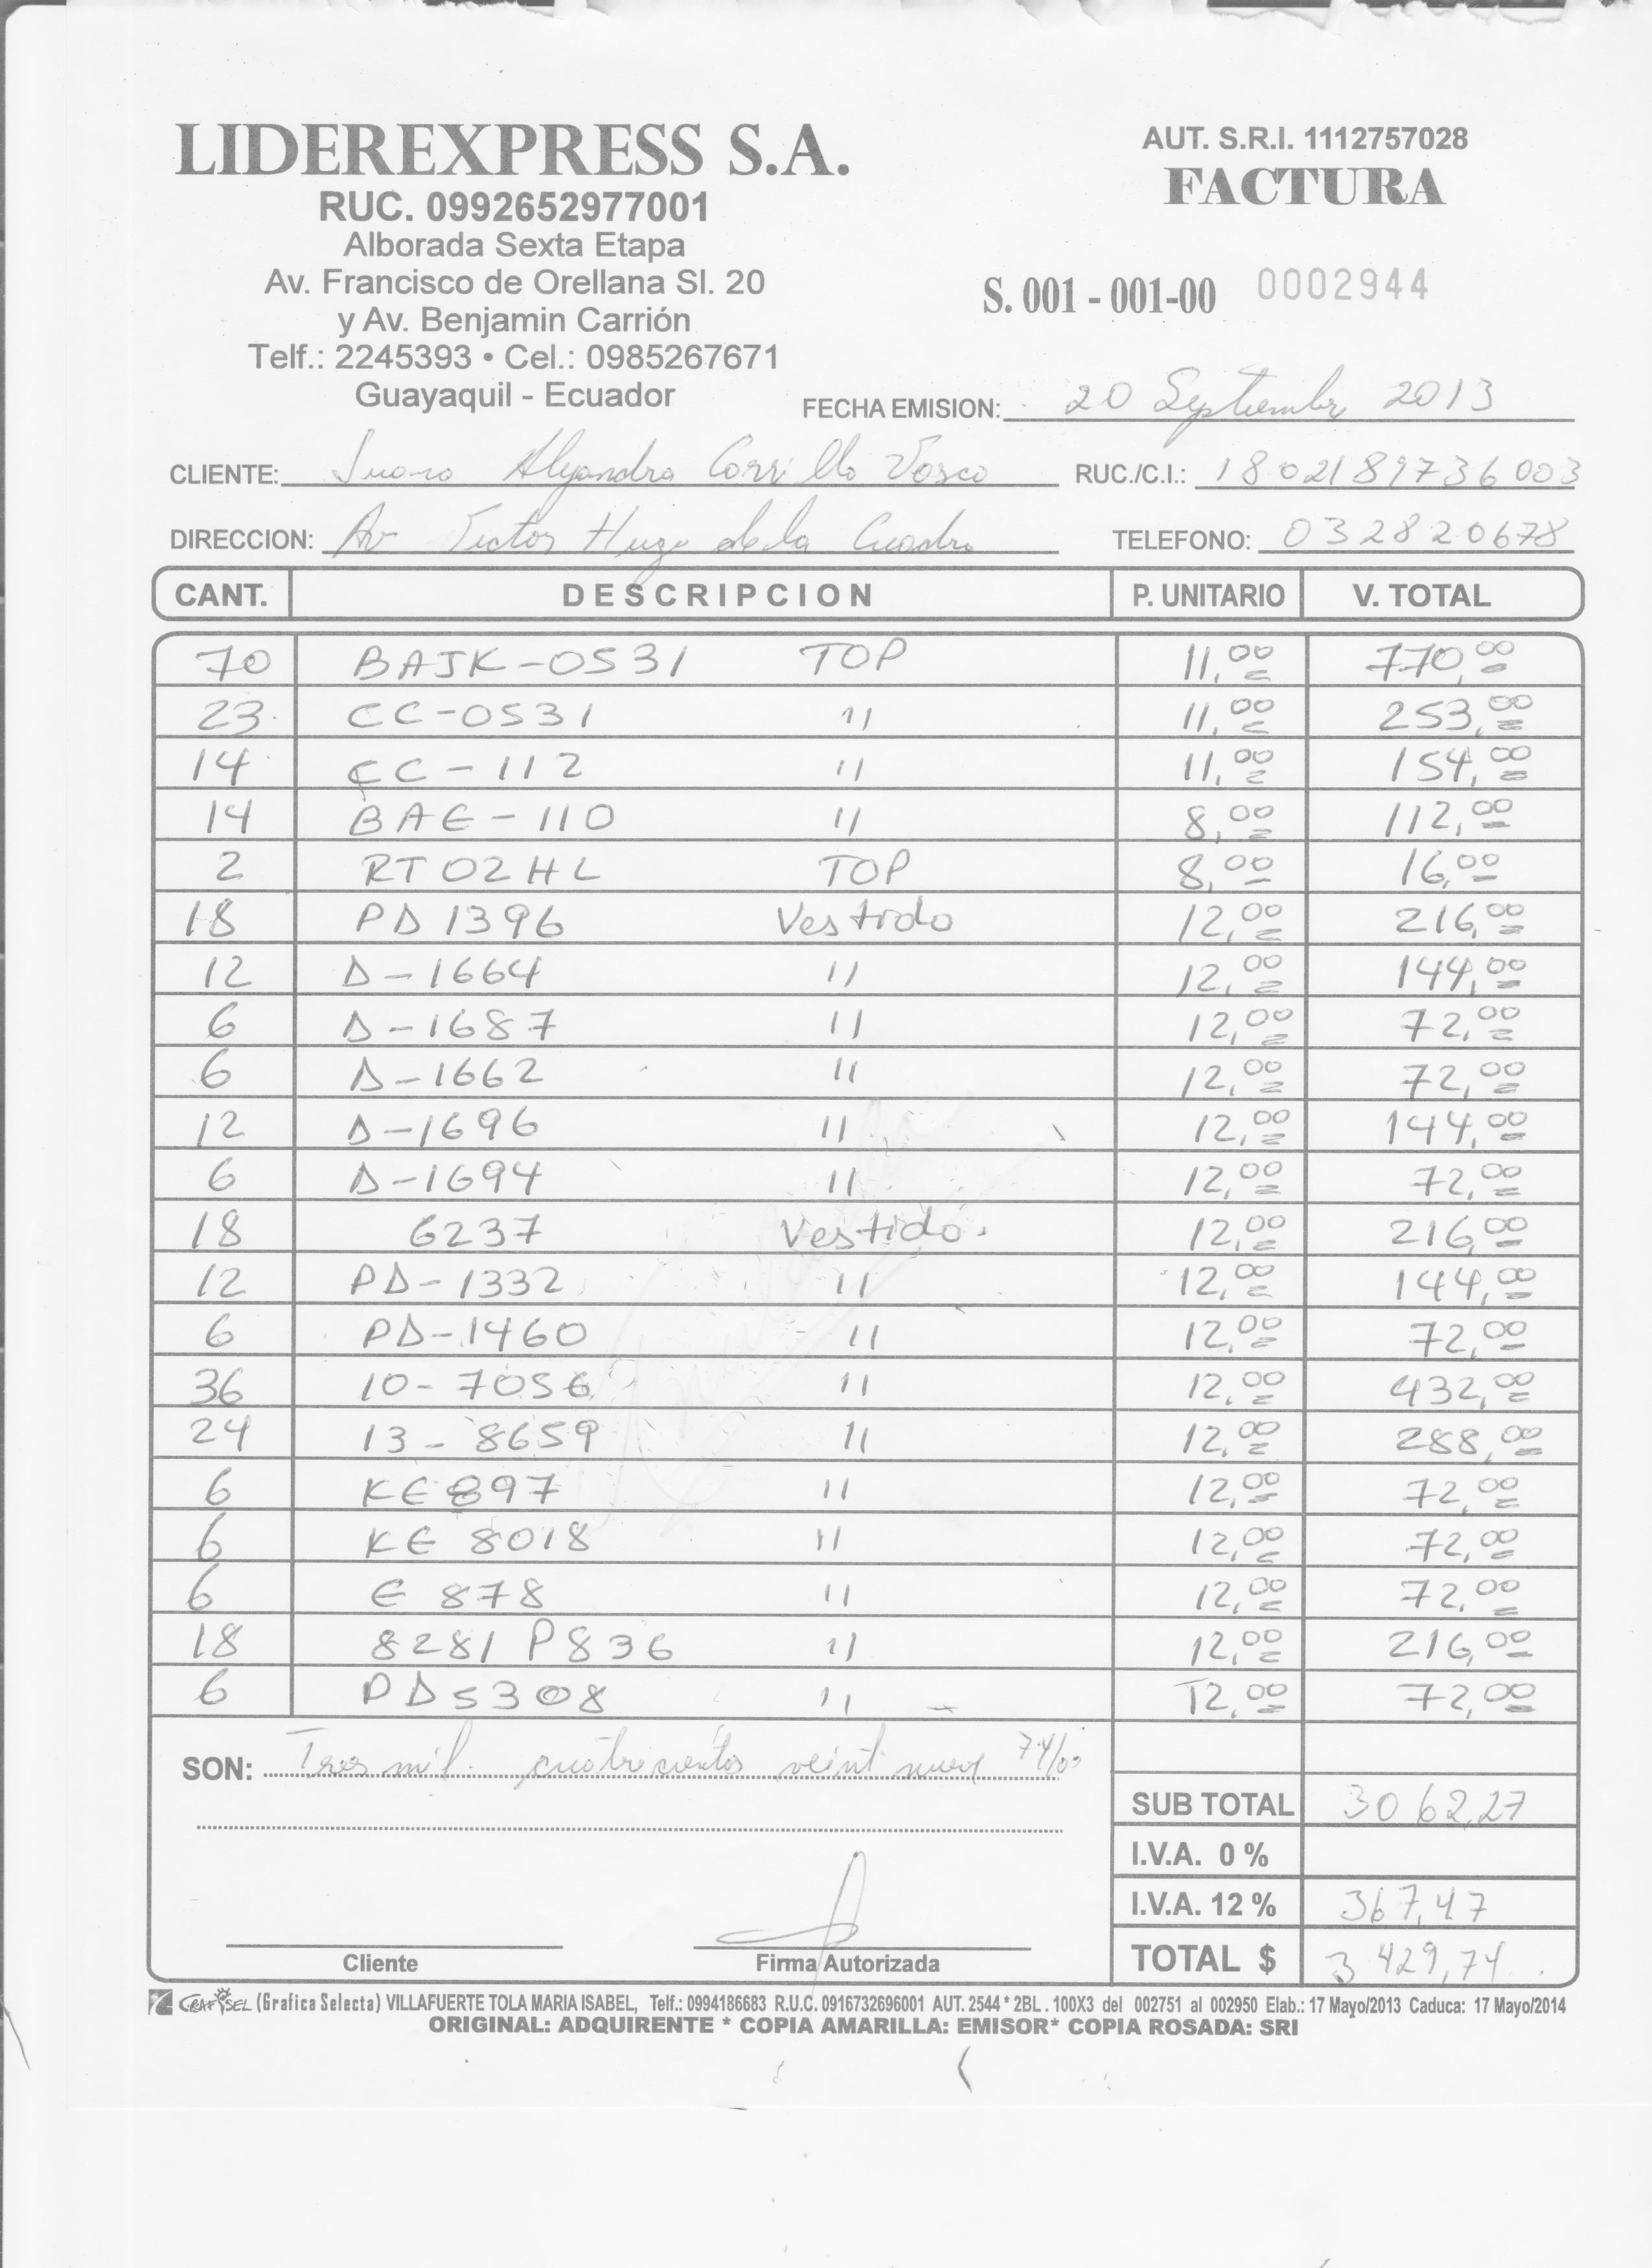 LIDEREXPRESS S.A.
RUC. 0992652977001
Alborada Sexta Etapa
Av. Francisco de Orellana Sl. 20
y Av. Benjamin Carrión
Telf.: 2245393 • Cel.: 0985267671
Guayaquil - Ecuador
AUT. S.R.I. 1112757028
FACTURA
S. 001 - 001-00 0002944
FECHA EMISION: 20 Septiembre 2013
CLIENTE: Alejandra Carrillo Vasco RUC./C.I.: 1802189736003
DIRECCION: Av Victor Hugo de la Cuadra TELEFONO: 032820678
CANT. DESCRIPCION P. UNITARIO V. TOTAL
70 BAJK-0531 TOP 11,00 770,00
23 CC-0531 11 11,00 253,00
14 CC-112 11 11,00 154,00
14 BAE-110 11 8,00 112,00
2 RT02HL TOP 8,00 16,00
18 PD 1396 Vestido 12,00 216,00
12 D-1664 11 12,00 144,00
6 D-1687 11 12,00 72,00
6 D-1662 11 12,00 72,00
12 D-1696 11 12,00 144,00
6 D-1694 11 12,00 72,00
18 6237 Vestido. 12,00 216,00
12 PD-1332 11 12,00 144,00
6 PD-1460 11 12,00 72,00
36 10-7056 11 12,00 432,00
24 13-8659 11 12,00 288,00
6 KE897 11 12,00 72,00
6 KE 8018 11 12,00 72,00
6 E 878 11 12,00 72,00
18 8281 P836 11 12,00 216,00
6 PD5308 11 12,00 72,00
SON: Tres mil cuatrocientos veinti nueve 74/00
SUB TOTAL 3062,27
I.V.A. 0 %
I.V.A. 12 % 367,47
TOTAL $ 3429,74
Cliente Firma Autorizada
GRAFISEL (Grafica Selecta) VILLAFUERTE TOLA MARIA ISABEL, Telf.: 0994186683 R.U.C. 0916732696001 AUT. 2544 * 2BL. 100X3 del 002751 al 002950 Elab.: 17 Mayo/2013 Caduca: 17 Mayo/2014
ORIGINAL: ADQUIRENTE * COPIA AMARILLA: EMISOR* COPIA ROSADA: SRI